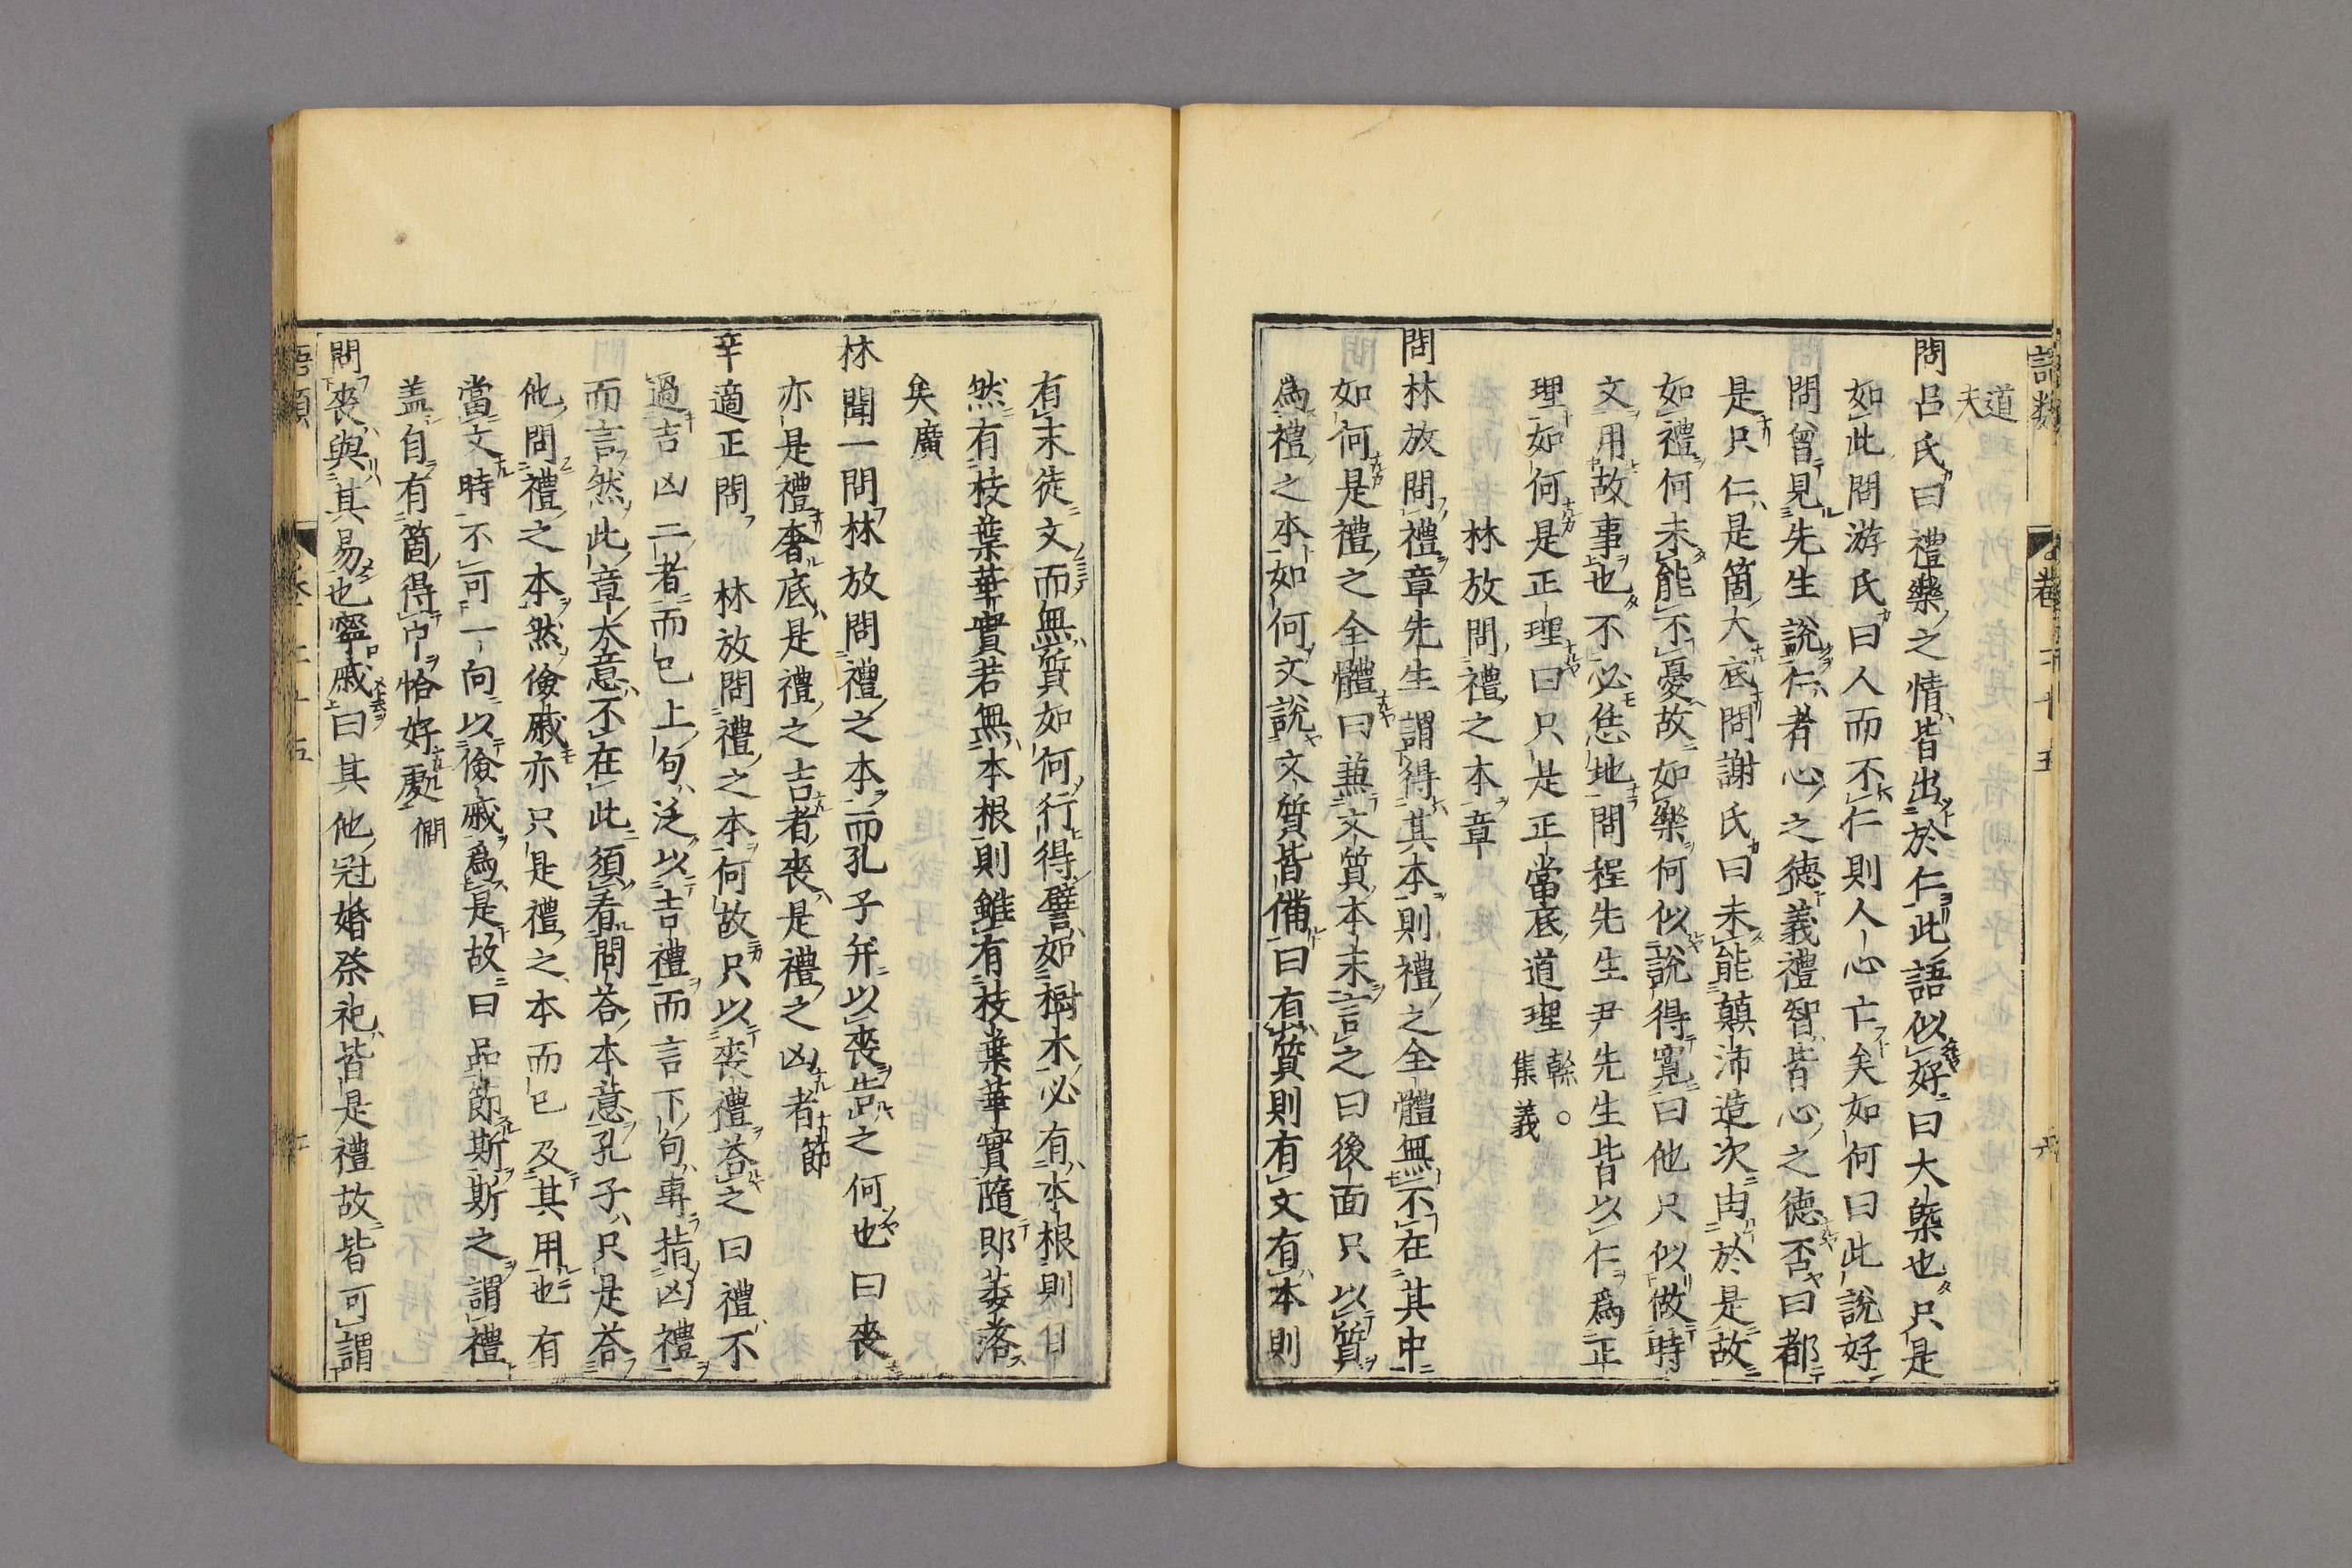 語類 卷二十五
道夫
問呂氏曰禮樂之情皆出於仁此語似好曰大槩也只是
如此問游氏曰人而不仁則人心亡矣如何曰此說好
問曾見先生說仁者心之德義禮智皆心之德否曰都
是只仁是箇大底問謝氏曰未能顛沛造次由於是故
如禮何未能不憂故如樂何似說得寬曰他只似做時
文用故事也不必恁地問程先生尹先生皆以仁爲正
理如何是正理曰只是正當底道理榦。集義
林放問禮之本章
問林放問禮章先生謂得其本則禮之全體無不在其中
如何是禮之全體曰兼文質本末言之曰後面只以質
爲禮之本如何又說文質皆備曰有質則有文有本則
有末徒文而無質如何行得譬如樹木必有本根則自
然有枝葉華實若無本根則雖有枝葉華實隨即萎落
矣廣
林聞一問林放問禮之本而孔子并以喪告之何也曰喪
亦是禮奢底是禮之吉者喪是禮之凶者節
辛適正問林放問禮之本何故只以喪禮答之曰禮不
過吉凶二者而已上句泛以吉禮而言下句專指凶禮
而言然此章大意不在此須看問答本意孔子只是答
他問禮之本然儉戚亦只是禮之本而已及其用也有
當文時不可一向以儉戚爲是故曰品節斯斯之謂禮
盖自有箇得中恰好處僩
問喪與其易也寧戚曰其他冠婚祭祀皆是禮故皆可謂
語類 卷二十五